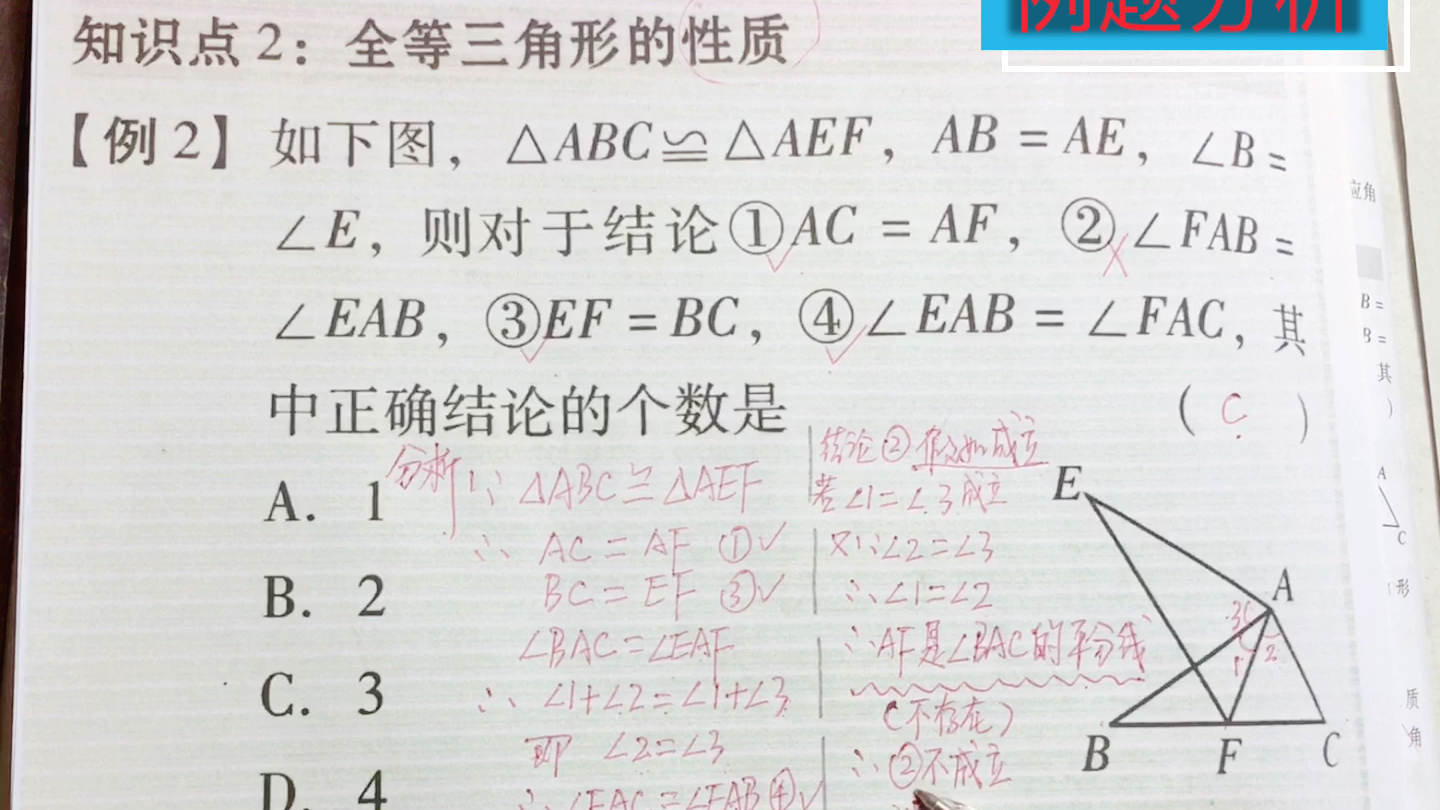 例题分析
知识点2：全等三角形的性质
【例2】如下图，△ABC≌△AEF，AB = AE，∠B =
∠E，则对于结论①AC = AF，②∠FAB =
∠EAB，③EF = BC，④∠EAB = ∠FAC，其
中正确结论的个数是 （ C ）
A. 1
B. 2
C. 3
D. 4
分析 ∵ △ABC≌△AEF
∴ AC = AF ①✓
BC = EF ③✓
∠BAC = ∠EAF
∴ ∠1+∠2=∠1+∠3
即 ∠2=∠3
∴ ∠FAC = ∠EAB ④✓
结论②假如成立
若∠1=∠3成立
又∵∠2=∠3
∴∠1=∠2
∴AF是∠BAC的平分线
（不存在）
∴②不成立
E
A
3
1
2
B
F
C
应角
B =
B =
其
）
A
C
形
质
角